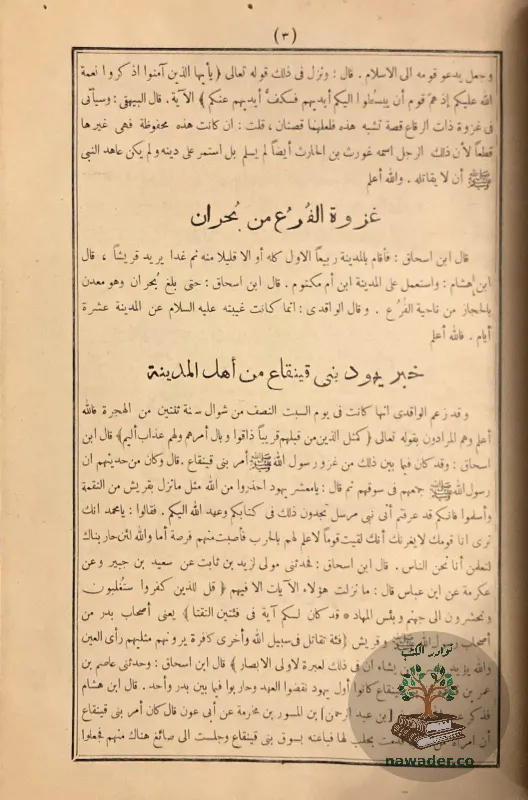 (٣)
وجعل يدعو قومه الى الاسلام . قال : ونزل فى ذلك قوله تعالى ( يأيها الذين آمنوا اذكروا نعمة
الله عليكم إذ هم قوم أن يبسطوا اليكم أيديهم فكف أيديهم عنكم ) الآية . قال البيهقى : وسيأتى
فى غزوة ذات الرقاع قصة تشبه هذه فلعلهما قصتان ، قلت : ان كانت هذه محفوظة فهى غيرها
قطعاً لأن ذلك الرجل اسمه غورث بن الحارث أيضاً لم يسلم بل استمر على دينه ولم يكن عاهد النبى
ﷺ أن لا يقاتله . والله أعلم
غزوة الفُرُع من بُحران
قال ابن اسحاق : فأقام بالمدينة ربيعاً الاول كله أو الا قليلا منه ثم غدا يريد قريشاً ، قال
ابن هشام : واستعمل على المدينة ابن أم مكتوم . قال ابن اسحاق : حتى بلغ بُحران وهو معدن
بالحجاز من ناحية الفُرُع . وقال الواقدى : انما كانت غيبته عليه السلام عن المدينة عشرة
أيام . فالله أعلم
خبر يهود بنى قينقاع من أهل المدينة
وقد زعم الواقدى انها كانت فى يوم السبت النصف من شوال سنة ثنتين من الهجرة فالله
أعلم وهم المرادون بقوله تعالى ( كمثل الذين من قبلهم قريباً ذاقوا وبال أمرهم ولهم عذاب أليم ) قال ابن
اسحاق : وقد كان فيما بين ذلك من غزو رسول الله ﷺ أمر بنى قينقاع . قال وكان من حديثهم ان
رسول الله ﷺ جمعهم فى سوقهم ثم قال : يامعشر يهود احذروا من الله مثل مانزل بقريش من النقمة
وأسلموا فانكم قد عرفتم أنى نبى مرسل تجدون ذلك فى كتابكم وعهد الله اليكم . فقالوا : يامحمد انك
ترى انا قومك لايغرنك أنك لقيت قوماً لاعلم لهم بالحرب فأصبت منهم فرصة أما والله لئن حاربناك
لتعلمن أنا نحن الناس . قال ابن اسحاق : فحدثنى مولى لزيد بن ثابت عن سعيد بن جبير وعن
عكرمة عن ابن عباس قال : ما نزلت هؤلاء الآيات الا فيهم ( قل للذين كفروا ستُغلبون
وتحشرون الى جهنم وبئس المهاد * قد كان لكم آية فى فئتين التقتا ) يعنى أصحاب بدر من
أصحاب رسول الله ﷺ وقريش ( فئة تقاتل فى سبيل الله وأخرى كافرة يرونهم مثليهم رأى العين
والله يؤيد من يشاء ان فى ذلك لعبرة لاولى الابصار ) قال ابن اسحاق : وحدثنى عاصم بن
عمر بن قينقاع كانوا أول يهود نقضوا العهد وحاربوا فيما بين بدر وأحد . قال ابن هشام
فذكر عبد [بن عبد الرحمن] بن المسور بن مخرمة عن أبى عون قال كان أمر بنى قينقاع
أن امرأة من قدمت بجلب لها فباعته بسوق بنى قينقاع وجلست الى صائغ هناك منهم فجعلوا
نوادر الكتب
nawader.co